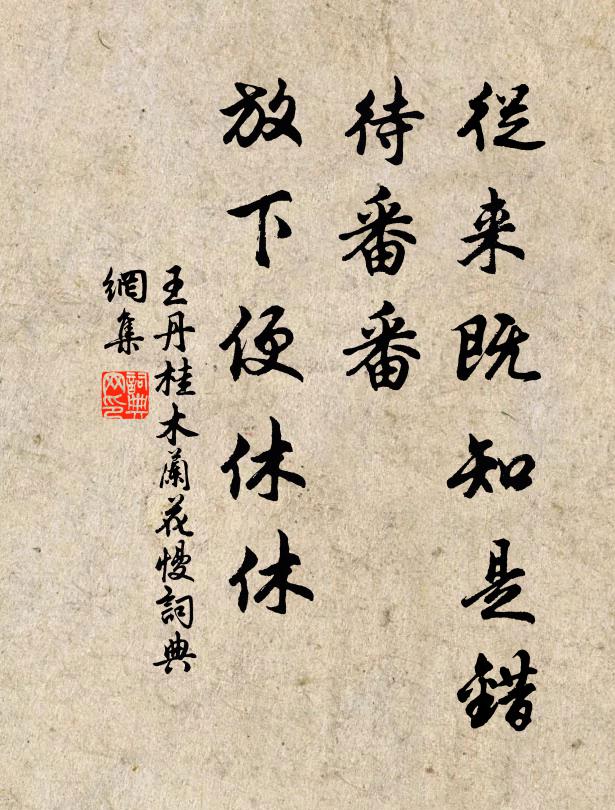 從来既知是錯
待番番
放下便休休
王丹桂木蘭花慢詞典
網集
詞典网印